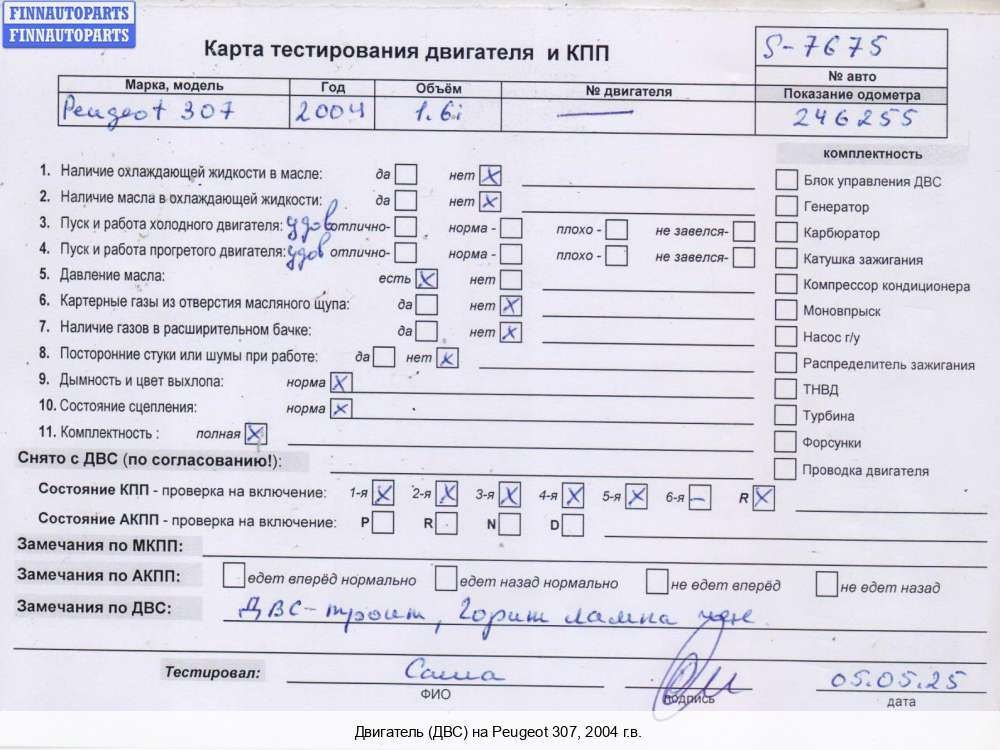 FINNAUTOPARTS
FINNAUTOPARTS
Карта тестирования двигателя и КПП
S-7675
№ авто
Марка, модель Год Объём № двигателя Показание одометра
Peugeot 307 2004 1.6i — 246255
комплектность
1. Наличие охлаждающей жидкости в масле: да нет X
Блок управления ДВС
2. Наличие масла в охлаждающей жидкости: да нет X
Генератор
3. Пуск и работа холодного двигателя: удов отлично- норма - плохо - не завелся-
Карбюратор
4. Пуск и работа прогретого двигателя: удов отлично- норма - плохо - не завелся-
Катушка зажигания
5. Давление масла: есть X нет
Компрессор кондиционера
6. Картерные газы из отверстия масляного щупа: да нет X
Моновпрыск
7. Наличие газов в расширительном бачке: да нет X
Насос г/у
8. Посторонние стуки или шумы при работе: да нет X
Распределитель зажигания
9. Дымность и цвет выхлопа: норма X
ТНВД
10. Состояние сцепления: норма X
Турбина
11. Комплектность : полная X
Форсунки
Снято с ДВС (по согласованию!):
Проводка двигателя
Состояние КПП - проверка на включение: 1-я X 2-я X 3-я X 4-я X 5-я X 6-я — R X
Состояние АКПП - проверка на включение: P R N D
Замечания по МКПП:
Замечания по АКПП: едет вперёд нормально едет назад нормально не едет вперёд не едет назад
Замечания по ДВС: ДВС-троит, Горит лампа чек
Тестировал: Саша 05.05.25
ФИО подпись дата
Двигатель (ДВС) на Peugeot 307, 2004 г.в.